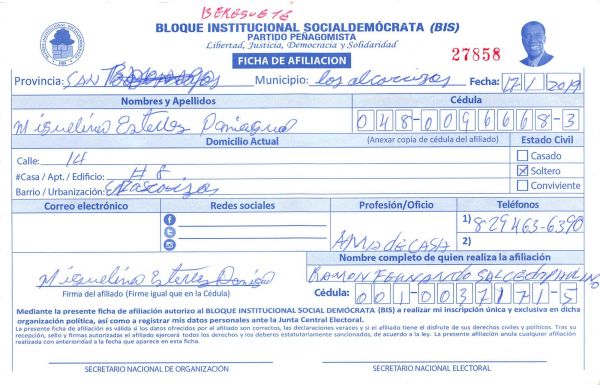 BERESUETE
BLOQUE INSTITUCIONAL SOCIALDEMÓCRATA (BIS)
PARTIDO PEÑAGOMISTA
Libertad, Justicia, Democracia y Solidaridad
FICHA DE AFILIACION
27858
Provincia: SAN Municipio: los alcarrizos Fecha: 17/1/2019
Nombres y Apellidos Cédula
Miguelina Esterles Paniagua 048-0096668-3
Domicilio Actual (Anexar copia de cédula del afiliado) Estado Civil
Calle: 14 Casado
#Casa / Apt. / Edificio: #8 Soltero
Barrio / Urbanización: Conviviente
Correo electrónico Redes sociales Profesión/Oficio Teléfonos
1) 829 463-6390
AMA de CASA 2)
Nombre completo de quien realiza la afiliación
Miguelina Esterles RAMON FERNANDO SALCEDO
Firma del afiliado (Firme igual que en la Cédula) Cédula: 001-0037171-5
Mediante la presente ficha de afiliación autorizo al BLOQUE INSTITUCIONAL SOCIAL DEMÓCRATA (BIS) a realizar mi inscripción única y exclusiva en dicha
organización política, así como a registrar mis datos personales ante la Junta Central Electoral.
La presente ficha de afiliación es válida si los datos ofrecidos por el afiliado son correctos, las declaraciones veraces y si el afiliado tiene el disfrute de sus derechos civiles y políticos. Tras su
recepción, sello y firmas autorizadas el afiliado ejercerá todos los derechos y los deberes estatutariamente sancionados, de acuerdo a la ley. La presente afiliación anula cualquier afiliación
realizada con anterioridad a la fecha que aparece en esta ficha.
SECRETARIO NACIONAL DE ORGANIZACIÓN SECRETARIO NACIONAL ELECTORAL